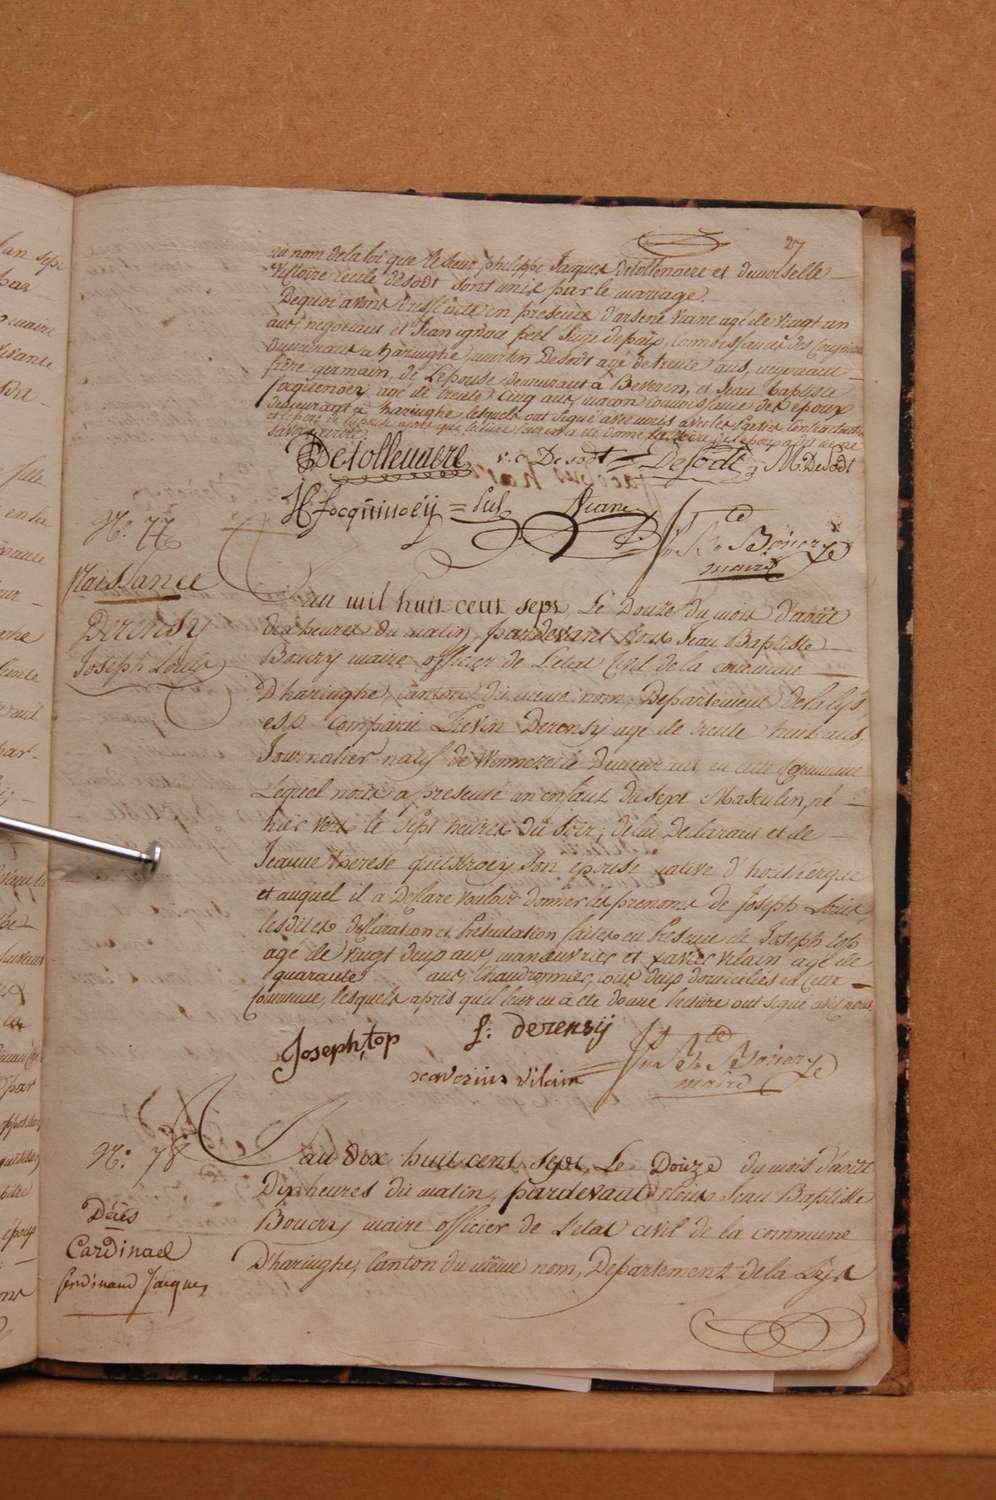 27
au nom de la loi que le sieur philippe Jacques Detollenaere et demoiselle
Victoire Cecile Desodt sont unis par le mariage.
De quoi avons dressé acte en presence d'arsene Viane agé de vingt un
ans, negociant et Jean ignace peel Juge de paix,
demeurant a haringhe, martin Desodt agé de trente ans, negociant
frère germain de L'epouse demeurant à Beveren, et Jean Baptiste
focquenoey agé de trente cinq ans, macon connoissance des epoux
demeurant à haringhe lesquels ont signé avec nous
Detollenaere v. c Desodt = Desodt M Desodt
H focquinoeij = Viane
J. B. Boucry
maire
N.° 77
Naissance
Derensy
Joseph Louis
L'an mil huit cent sept Le Douze du mois d'août
dix heures du matin, pardevant Nous Jean Baptiste
Boucry maire officier de L'etat Civil de la commune
D'haringhe, canton du même nom, Departement de la lys,
est Comparu Lievin Derensy agé de trente huit ans,
Journalier natif de Winnezeele demeurant en cette Commune
Lequel nous a presenté un enfant du sexe Masculin, né
hier vers le sept heures du soir, de lui declarant et de
Jeanne therese son epouse native d'
et auquel il a declaré vouloir donner les prenoms de Joseph Louis,
lesdites declaration et presentation faites en Presence de Joseph top
agé de vingt deux ans, manœuvrier et xavier vilain agé de
quarante ans, Chaudronnier, tous deux domiciliés en cette
Commune, lesquels après qu'il leur en a été donné lecture ont signé avec nous.
Joseph, top L: derensij
xaverius vilain J. B. Boucry
maire
N.° 78
Décès
Cardinael
ferdinand Jacques
L'an dix huit cent sept, Le Douze du mois d'août
Dix heures du matin, pardevant Nous Jean Baptiste
Boucry maire officier de L'etat civil de la commune
D'haringhe, Canton du même nom, Departement de la Lys